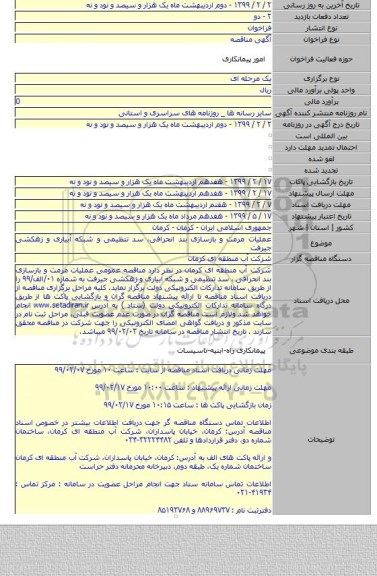 تاریخ آخرین به روز رسانی ۲ / ۲ / ۱۳۹۹ - دوم اردیبهشت ماه یک هزار و سیصد و نود و نه
تعداد دفعات بازدید ۲ - دو
نوع انتشار فراخوان
نوع فراخوان آگهی مناقصه
حوزه فعالیت فراخوان امور پیمانکاری
نوع برگزاری یک مرحله ای
واحد پولی برآورد مالی ریال
برآورد مالی 0
نام روزنامه منتشر کننده آگهی سایر رسانه ها _ روزنامه های سراسری و استانی
تاریخ درج آگهی در روزنامه ۲ / ۲ / ۱۳۹۹ - دوم اردیبهشت ماه یک هزار و سیصد و نود و نه
بین المللی است
احتمال تمدید مهلت دارد
لغو شده
تجدید شده
تاریخ بازگشایی پاکات ۱۷ / ۲ / ۱۳۹۹ - هفدهم اردیبهشت ماه یک هزار و سیصد و نود و نه
مهلت ارسال پیشنهاد ۱۷ / ۲ / ۱۳۹۹ - هفدهم اردیبهشت ماه یک هزار و سیصد و نود و نه
مهلت دریافت اسناد ۷ / ۲ / ۱۳۹۹ - هفتم اردیبهشت ماه یک هزار و سیصد و نود و نه
تاریخ اعتبار پیشنهاد ۱۷ / ۵ / ۱۳۹۹ - هفدهم مرداد ماه یک هزار و سیصد و نود و نه
کشور | استان | شهر جمهوری اسلامی ایران - کرمان - کرمان
موضوع عملیات مرمت و بازسازی بند انحرافی، سد تنظیمی و شبکه آبیاری و زهکشی
جیرفت
دستگاه مناقصه گزار شرکت آب منطقه ای کرمان
محل دریافت اسناد شرکت آب منطقه ای کرمان در نظر دارد مناقصه عمومی عملیات مرمت و بازسازی
بند انحرافی، سد تنظیمی و شبکه آبیاری و زهکشی جیرفت به شماره ۰۱/الف/۹۹ را
از طریق سامانه تدارکات الکترونیکی دولت برگزار نماید. کلیه مراحل برگزاری مناقصه از
دریافت اسناد مناقصه تا ارائه پیشنهاد مناقصه گران و بازگشایی پاکت ها از طریق
درگاه سامانه تدارکات الکترونیکی دولت (ستاد) به آدرس www.setadiran.ir انجام
خواهد شد ولازم است مناقصه گران در صورت عدم عضویت قبلی، مراحل ثبت نام در
سایت مذکور و دریافت گواهی امضای الکترونیکی را جهت شرکت در مناقصه محقق
سازند . تاریخ انتشار مناقصه در سامانه تاریخ ۹۹/۰۲/۰۲ میباشد.
طبقه بندی موضوعی پیمانکاری راه-ابنیه-تاسیسات
مهلت زمانی دریافت اسناد مناقصه از سایت : ساعت ۱۰ مورخ ۹۹/۰۲/۰۷
مهلت زمانی ارائه پیشنهاد : ساعت ۱۰:۰۰ مورخ ۹۹/۰۲/۱۷
زمان بازگشایی پاکت ها : ساعت ۱۰:۱۵ مورخ ۹۹/۰۲/۱۷
توضیحات اطلاعات تماس دستگاه مناقصه گر جهت دریافت اطلاعات بیشتر در خصوص اسناد
مناقصه آدرس: کرمان، خیابان پاسداران، شرکت آب منطقه ای کرمان، ساختمان
شماره دو، دفتر قراردادها و تلفن ۳۲۲۲۴۴۸۲-۰۳۴
و ارائه پاکت های الف به آدرس: کرمان، خیابان پاسداران، شرکت آب منطقه ای کرمان
ساختمان شماره یک، طبقه دوم، دبیرخانه محرمانه دفتر حراست
اطلاعات تماس سامانه ستاد جهت انجام مراحل عضویت در سامانه : مرکز تماس :
۰۲۱-۴۱۹۳۴
دفترثبت نام : ۸۸۹۶۹۷۳۷ و ۸۵۱۹۳۷۶۸